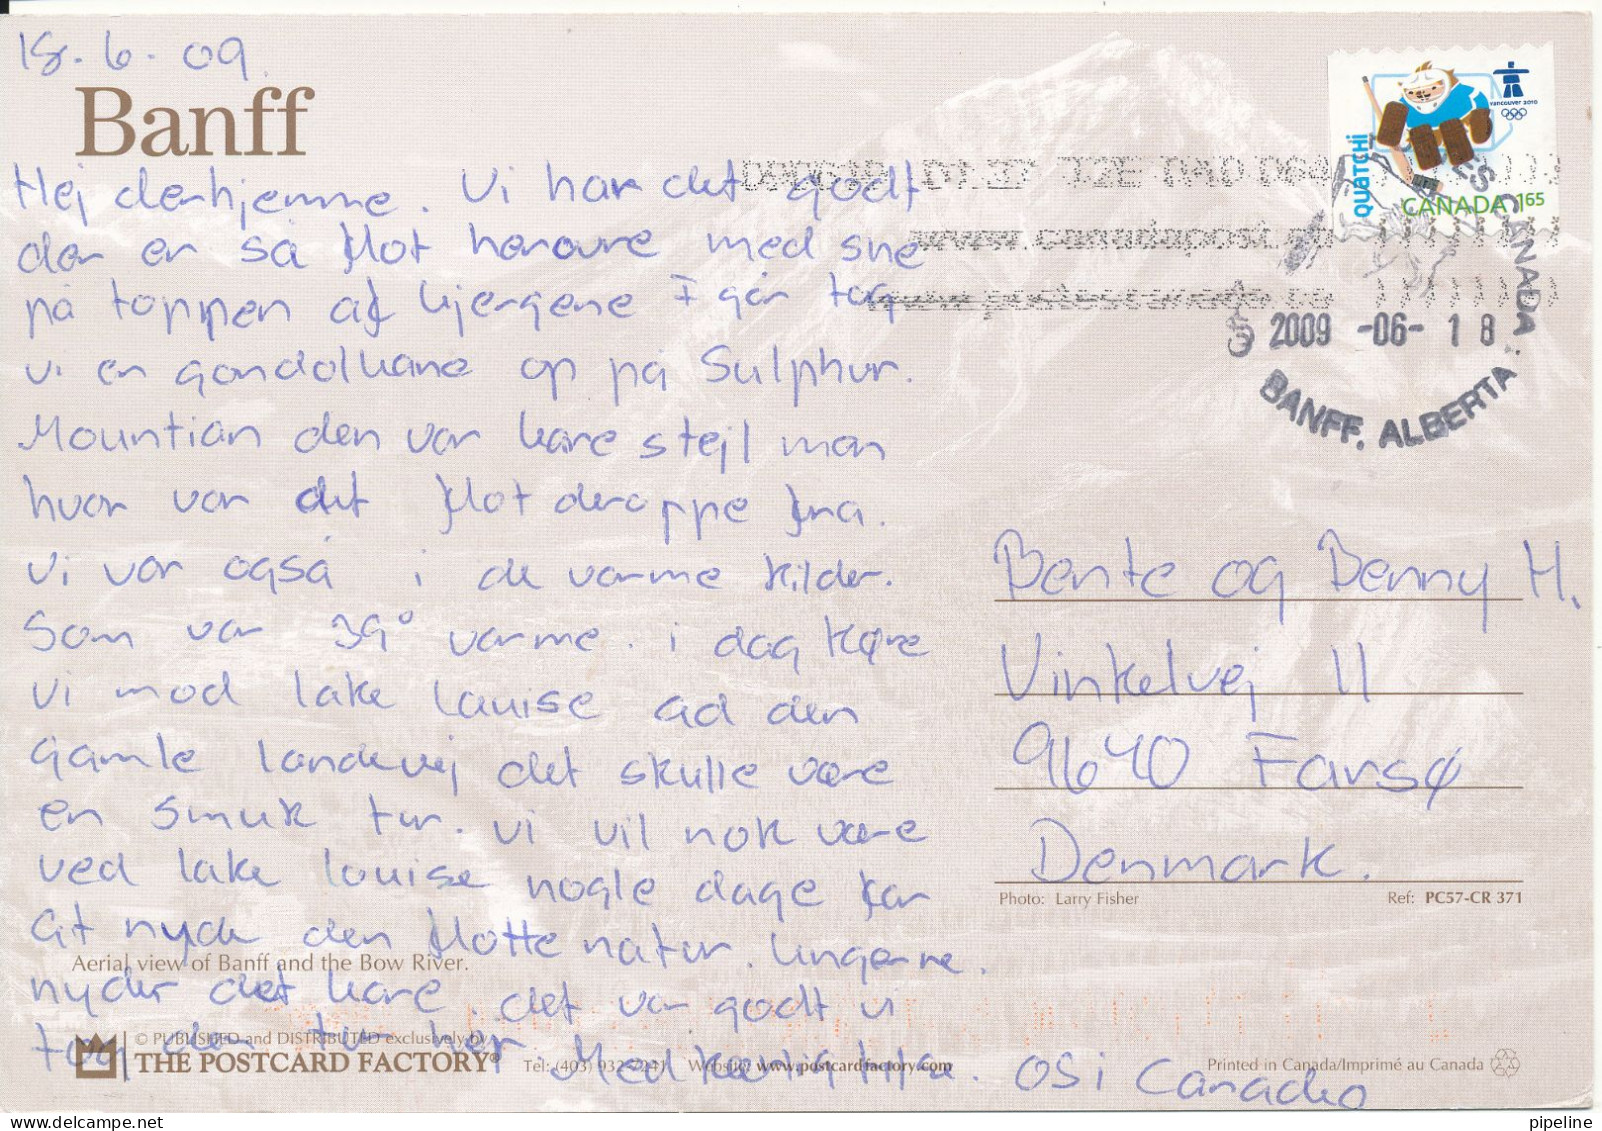 18.6.09
Banff
Hej derhjemme. Vi har det godt
der er så flot heroure med sne
på toppen af bjergene I går tog
vi en gondolbane op på Sulphur.
Mountian den var bare stejl man
hvor var det flot deroppe fra.
Vi var også i de varme kilder.
Som var 39° varme. i dag køre
vi mod lake Lauise ad den
gamle landevej det skulle være
en smuk tur. vi vil nok være
ved lake louise nogle dage for
at nyde den flotte natur. Ungerne.
nyder det bare. det var godt vi
tog den tur her. Med kærlig hilsen. OSi Canada
Aerial view of Banff and the Bow River.
© PUBLISHED and DISTRIBUTED exclusively by
THE POSTCARD FACTORY®
Tel: (403) 932-2241 Website: www.postcardfactory.com
QUATCHI
vancouver 2010
CANADA 165
www.canadapost.ca
www.postescanada.ca
POSTES CANADA
2009 -06- 18
BANFF, ALBERTA
Bente og Benny H.
Vinkelvej 11
9640 Farsø
Denmark.
Photo: Larry Fisher
Ref: PC57-CR 371
Printed in Canada/Imprimé au Canada
pipeline